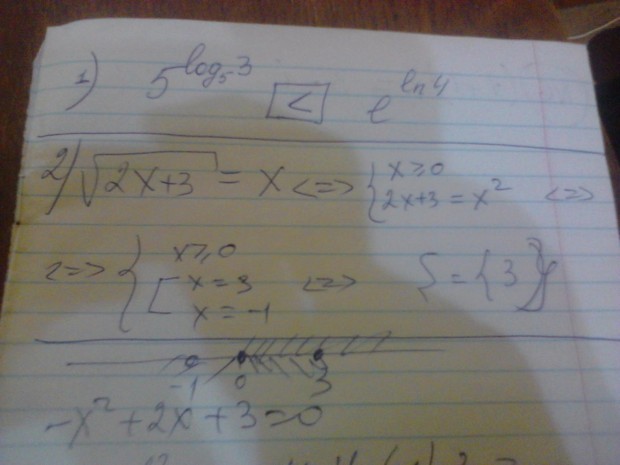 1) 5^{log_5 3} < e^{ln 4}
2) √(2x+3) = x <=> { x ≥ 0 ; 2x+3 = x² <=>
<=> { x ≥ 0 ; [ x = 3 ; x = -1 <=> S = {3}
-1 0 3
-x² + 2x + 3 = 0